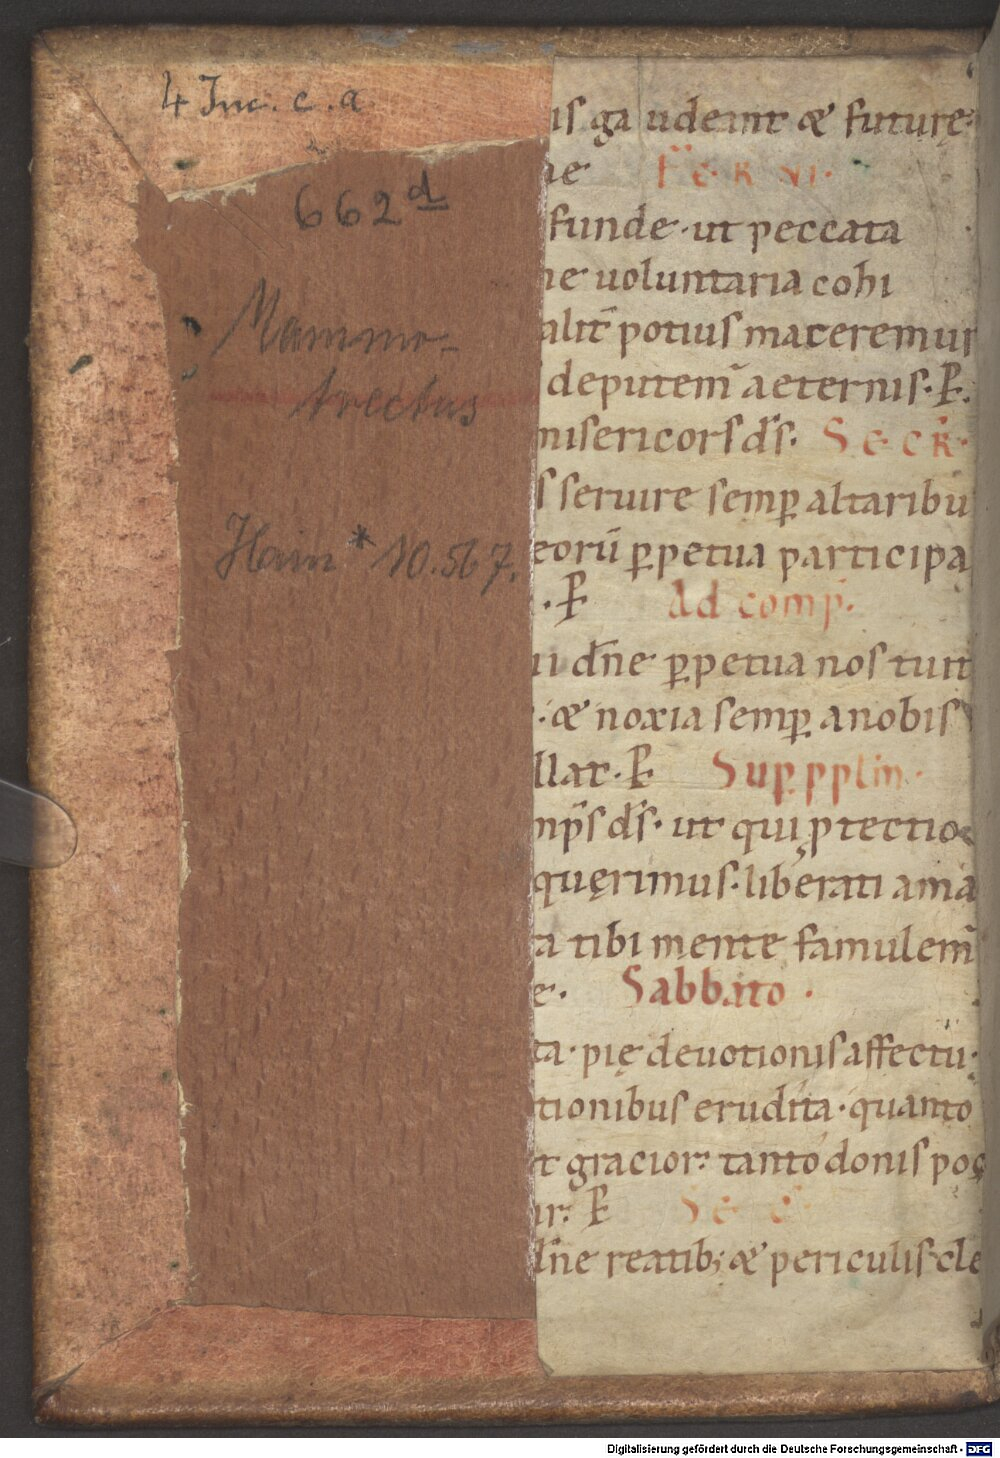 4 Inc. c. a.
662 d
Mammo-
trectus
Hain * 10.567.
is gaudeant & futurę
ne FER VI.
funde · ut peccata
ne uoluntaria cohi
alit̄ potius maceremur
deputem̄ aeternis · P.
misericors d̄s · SECR̄.
s seruire semp̱ altaribu
eorū p̱petua participa
· P Ad comp̄.
ui dn̄e p̱petua nos tuit
· & noxia semp̱ a nobis
llat · P Sup. pplm̄.
np̄s d̄s · ut qui ꝓtectio
quęrimus · liberati a ma
ta tibi mente famulem̄
e · Sabbato ·
ta · pię deuotionis affectu ·
tionibus erudita · quanto
t gracior · tanto donis poc
ur · P SEC
dn̄e reatib; & periculis · cle
Digitalisierung gefördert durch die Deutsche Forschungsgemeinschaft - DFG